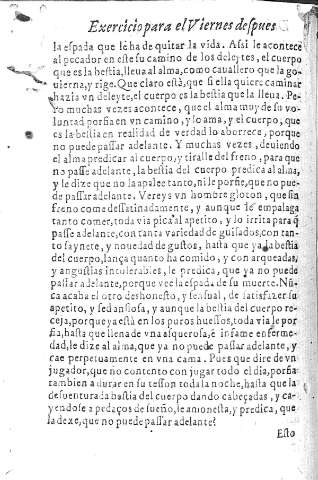 Exercicio para el Viernes despues
la espada que le ha de quitar la vida. Assi le acontece
al pecador en este su camino de los deleytes, el cuerpo
que es la bestia, lleua al alma, como cauallero que la go-
uierna, y rige. Que claro està, que si ella quiere caminar
hazia vn deleyte, el cuerpo es la bestia que la lleua. Pe-
ro muchas vezes acontece, que el alma muy de su vo-
luntad porfia en vn camino, y lo ama, y el cuerpo, que
es la bestia en realidad de verdad lo aborrece, porque
no puede passar adelante. Y muchas vezes, deuiendo
el alma predicar al cuerpo, y tiralle del freno, para que
no passe adelante, la bestia del cuerpo predica al alma,
y le dize que no la apalee tanto, ni le porfie, que no pue-
de passar adelante. Vereys vn hombre gloton, que sin
freno come desatinadamente, y aunque le empalaga
tanto comer, toda via pica al apetito, y lo irrita para q̃
passe adelante, con tanta variedad de guisados, con tan-
to saynete, y nouedad de gustos, hasta que ya la bestia
del cuerpo, lança quanto ha comido, y con arqueadas,
y angustias intolerables, le predica, que ya no puede
passar adelante, porque vee la espada de su muerte. Nũ-
ca acaba el otro deshonesto, y sensual, de satisfazer su
apetito, y sed ansiosa, y aunque la bestia del cuerpo re-
ceja, porque ya està en los puros huessos, toda via le por
fia, hasta que llena de vna asquerosa, è infame enferme-
dad, le dize al alma, que ya no puede passar adelante, y
cae perpetuamente en vna cama. Pues que dire de vn
jugador, que no contento con jugar todo el dia, porfia
tambien a durar en su tesson toda la noche, hasta que la
desuenturada bestia del cuerpo dando cabeçadas, y ca-
yendose a pedaços de sueño, le amonesta, y predica, que
la dexe, que no puede passar adelante?
Esto